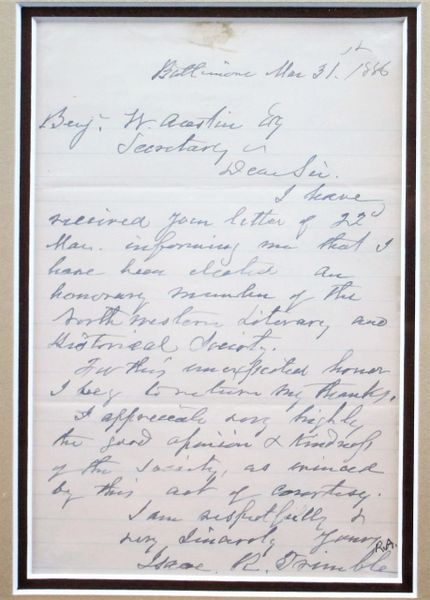 Baltimore Mar 31st 1886
Benj. W. Austin Esq
Secretary
Dear Sir.
I have
received your letter of 22d
Mar. informing me that I
have been elected an
honorary member of the
North western Literary and
Historical Society.
For this unexpected honor
I beg to return my thanks.
I appreciate very highly
the good opinion & kindness
of the Society, as evinced
by this act of courtesy.
I am respectfully &
very Sincerely Yours
R.A.
Isaac R. Trimble